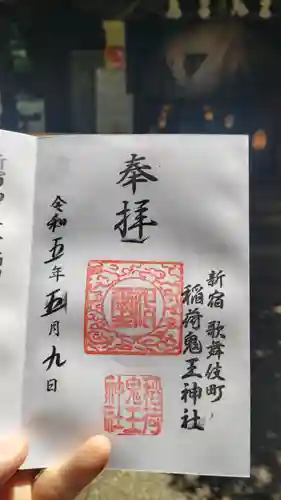 奉拝
新宿 歌舞伎町
稲荷鬼王神社
令和五年五月九日
稲荷
鬼王
神社